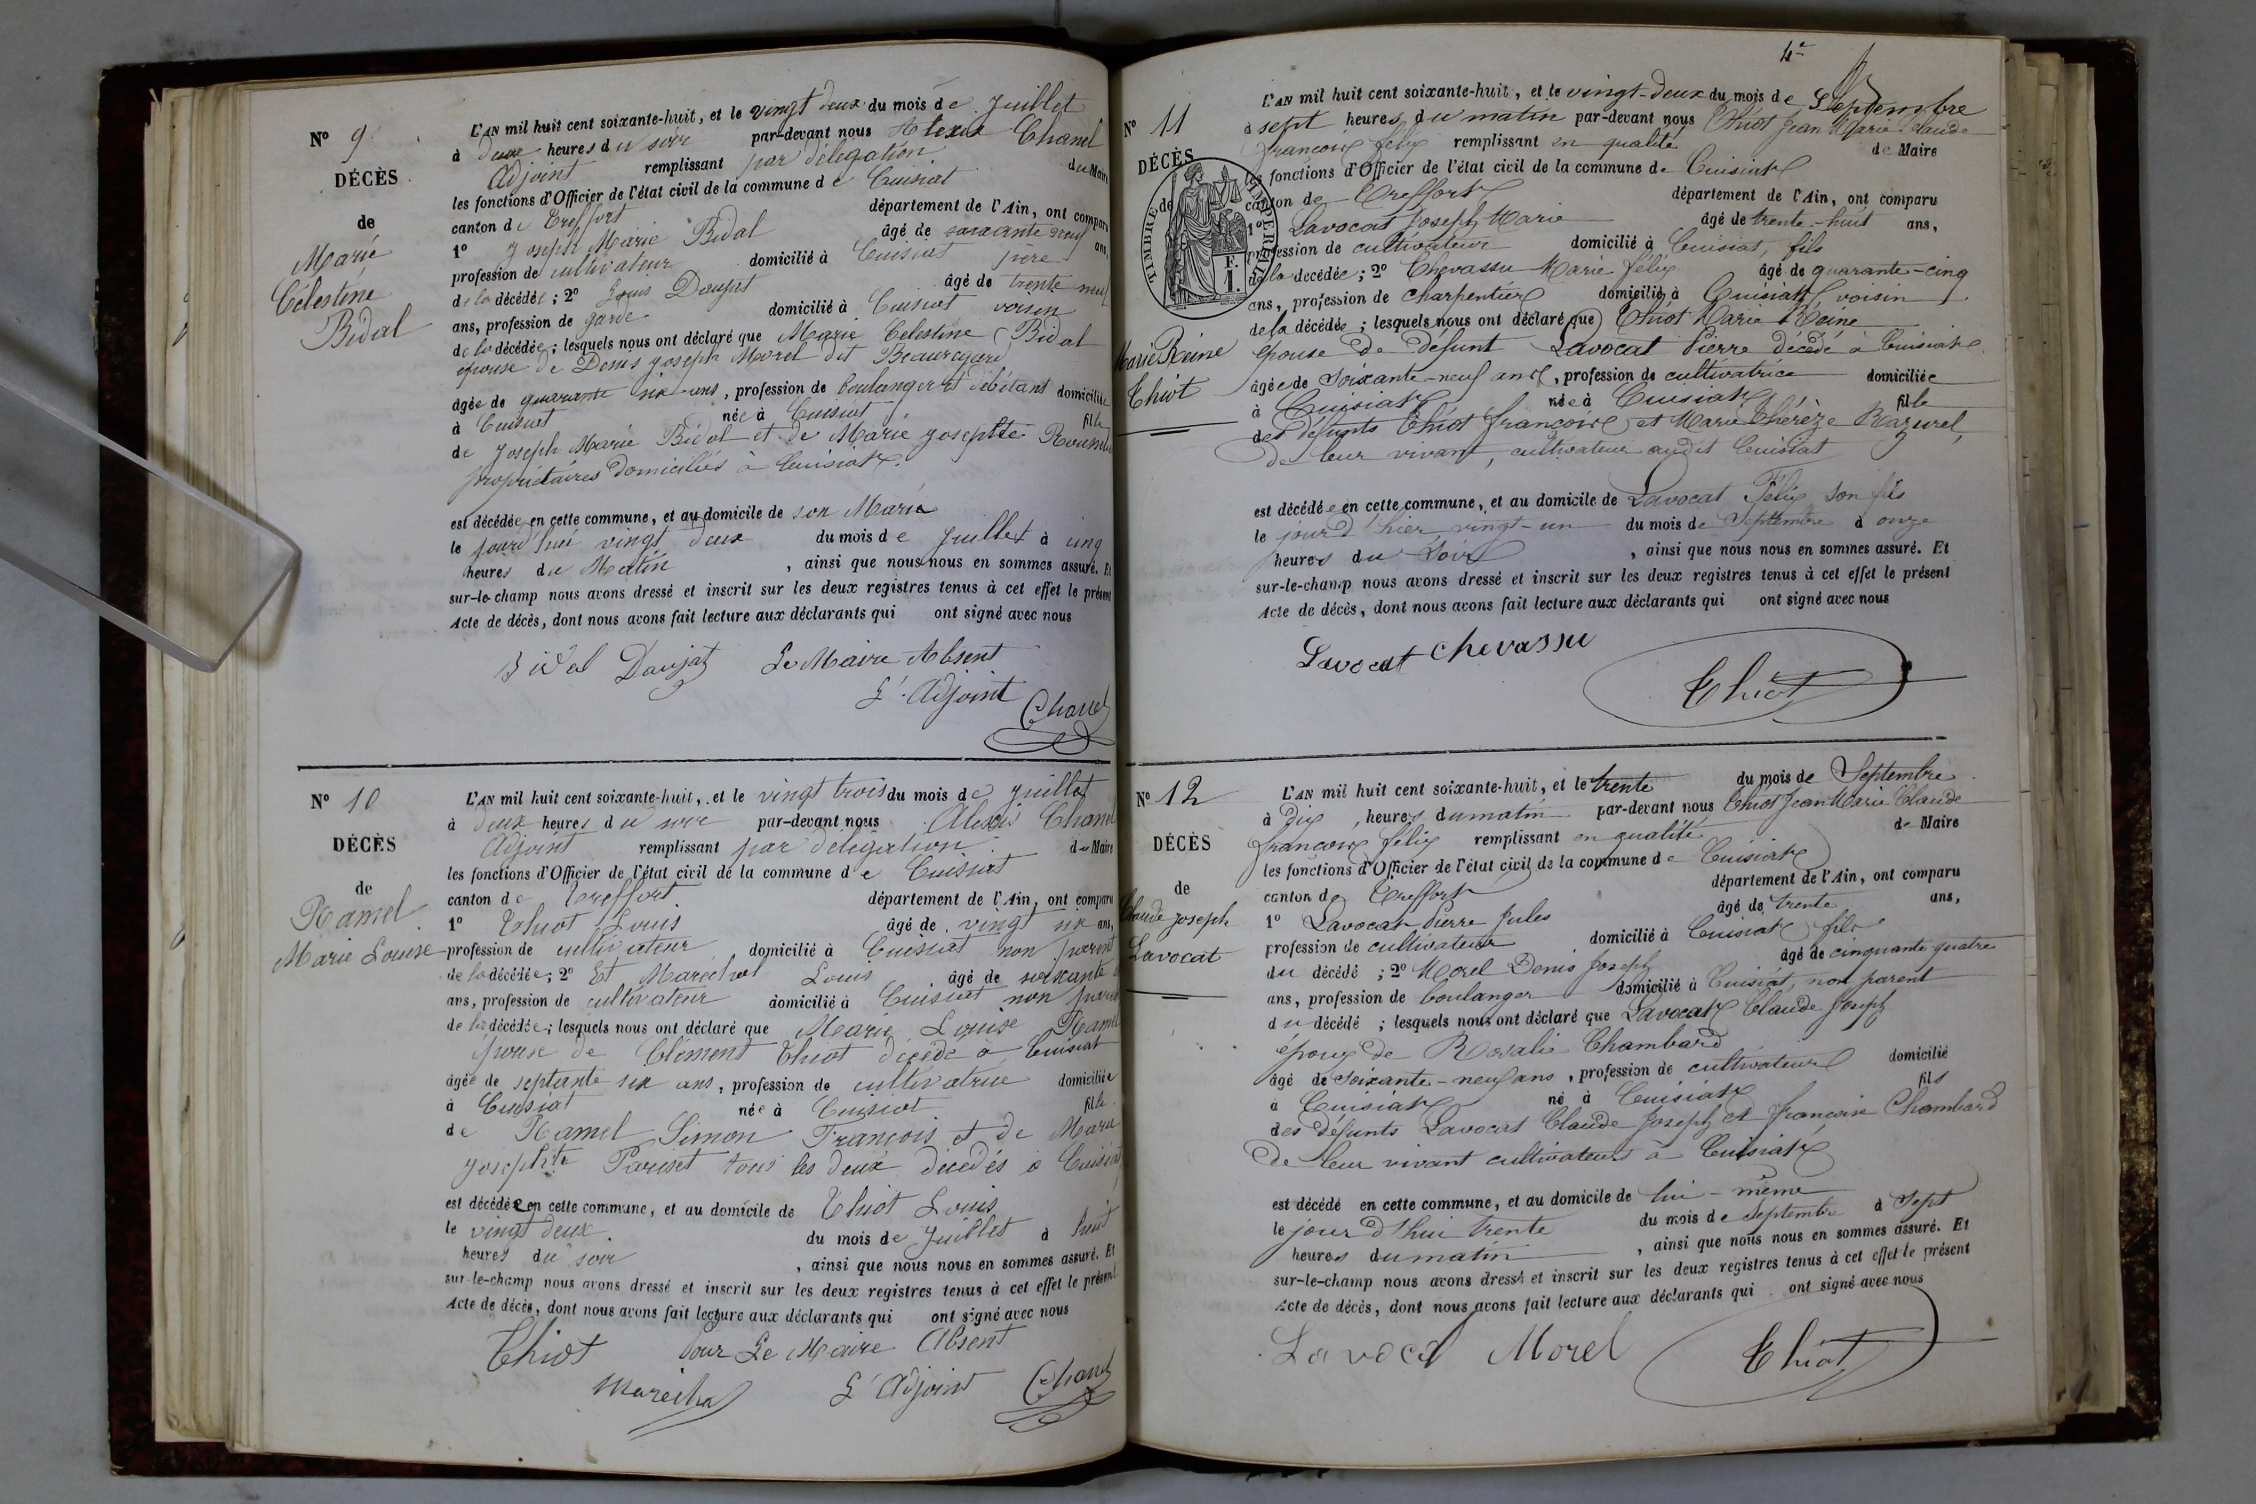 Nº 9
DÉCÈS
de
Marie
Célestine
Bidal
L'AN mil huit cent soixante-huit, et le vingt deux du mois de Juillet
à deux heures du soir par-devant nous Alexis Chanel
Adjoint remplissant par délégation du Maire
les fonctions d'Officier de l'état civil de la commune de Cuisiat
canton de Treffort département de l'Ain, ont comparu
1º Joseph Marie Bidal âgé de soixante neuf ans,
profession de cultivateur domicilié à Cuisiat père
de la décédée ; 2º Louis Daujat âgé de trente neuf
ans, profession de garde domicilié à Cuisiat voisin
de la décédée ; lesquels nous ont déclaré que Marie Célestine Bidal
épouse de Denis Joseph Morel dit Beauregard
âgée de quarante six ans, profession de boulanger et débitant domiciliée
à Cuisiat née à Cuisiat fille
de Joseph Marie Bidal et de Marie Josephte
propriétaires domiciliés à Cuisiat
est décédée en cette commune, et au domicile de son Marie
le jourd'hui vingt deux du mois de Juillet à cinq
heures du Matin , ainsi que nous nous en sommes assuré. Et
sur-le-champ nous avons dressé et inscrit sur les deux registres tenus à cet effet le présent
Acte de décès, dont nous avons fait lecture aux déclarants qui ont signé avec nous
Bidal Daujat Le Maire Absent
L'Adjoint Chanel
Nº 10
DÉCÈS
de
Ramel
Marie Louise
L'AN mil huit cent soixante-huit, et le vingt trois du mois de Juillet
à deux heures du soir par-devant nous Alexis Chanel
Adjoint remplissant par délégation du Maire
les fonctions d'Officier de l'état civil de la commune de Cuisiat
canton de Treffort département de l'Ain, ont comparu
1º Thiot Louis âgé de vingt six ans,
profession de cultivateur domicilié à Cuisiat non parent
de la décédée ; 2º Et Marechal Louis âgé de soixante
ans, profession de cultivateur domicilié à Cuisiat non parent
de la décédée ; lesquels nous ont déclaré que Marie Louise Ramel
épouse de Clément Thiot décédé à Cuisiat
âgée de septante six ans, profession de cultivatrice domiciliée
à Cuisiat née à Cuisiat fille
de Ramel Simon François et de Marie
Josephte Pariset tous les deux décédés à Cuisiat
est décédée en cette commune, et au domicile de Thiot Louis
le vingt deux du mois de Juillet à huit
heures du soir , ainsi que nous nous en sommes assuré. Et
sur-le-champ nous avons dressé et inscrit sur les deux registres tenus à cet effet le présent
Acte de décès, dont nous avons fait lecture aux déclarants qui ont signé avec nous
Thiot Pour Le Maire Absent
Marechal L'Adjoint Chanel
Nº 11
DÉCÈS
de
TIMBRE IMPERIAL
F.
1.
Marie Reine
Thiot
L'AN mil huit cent soixante-huit, et le vingt-deux du mois de Septembre
à sept heures du matin par-devant nous Thiot Jean Marie Claude
françois félix remplissant en qualité de Maire
les fonctions d'Officier de l'état civil de la commune de Cuisiat
canton de Treffort département de l'Ain, ont comparu
1º Lavocat Joseph Marie âgé de trente-huit ans,
profession de cultivateur domicilié à Cuisiat, fils
de la décédée ; 2º Chevassu Marie félix âgé de quarante-cinq
ans, profession de charpentier domicilié à Cuisiat, voisin
de la décédée ; lesquels nous ont déclaré que Thiot Marie Reine
épouse de défunt Lavocat Pierre décédé à Cuisiat
âgée de soixante-neuf ans, profession de cultivatrice domiciliée
à Cuisiat née à Cuisiat fille
des défunts Thiot françois et Marie Thérèze Razurel,
de leur vivant, cultivateur audit Cuisiat
est décédée en cette commune, et au domicile de Lavocat Félix son fils
le jour d'hier vingt-un du mois de Septembre à onze
heures du soir , ainsi que nous nous en sommes assuré. Et
sur-le-champ nous avons dressé et inscrit sur les deux registres tenus à cet effet le présent
Acte de décès, dont nous avons fait lecture aux déclarants qui ont signé avec nous
Lavocat Chevassu
Thiot
Nº 12
DÉCÈS
de
Claude Joseph
Lavocat
L'AN mil huit cent soixante-huit, et le trente du mois de Septembre
à Dix heures du matin par-devant nous Thiot Jean Marie Claude
françois félix remplissant en qualité de Maire
les fonctions d'Officier de l'état civil de la commune de Cuisiat
canton de Treffort département de l'Ain, ont comparu
1º Lavocat Pierre Jules âgé de trente ans,
profession de cultivateur domicilié à Cuisiat fils
du décédé ; 2º Morel Denis Joseph âgé de cinquante quatre
ans, profession de boulanger domicilié à Cuisiat, non parent
du décédé ; lesquels nous ont déclaré que Lavocat Claude Joseph
époux de Rosalie Chambard
âgé de soixante-neuf ans, profession de cultivateur domicilié
à Cuisiat né à Cuisiat fils
des défunts Lavocat Claude Joseph et françoise Chambard
de leur vivant cultivateurs à Cuisiat
est décédé en cette commune, et au domicile de lui-même
le jour d'hui trente du mois de septembre à Sept
heures du matin , ainsi que nous nous en sommes assuré. Et
sur-le-champ nous avons dressé et inscrit sur les deux registres tenus à cet effet le présent
Acte de décès, dont nous avons fait lecture aux déclarants qui ont signé avec nous
Lavocat Morel Thiot